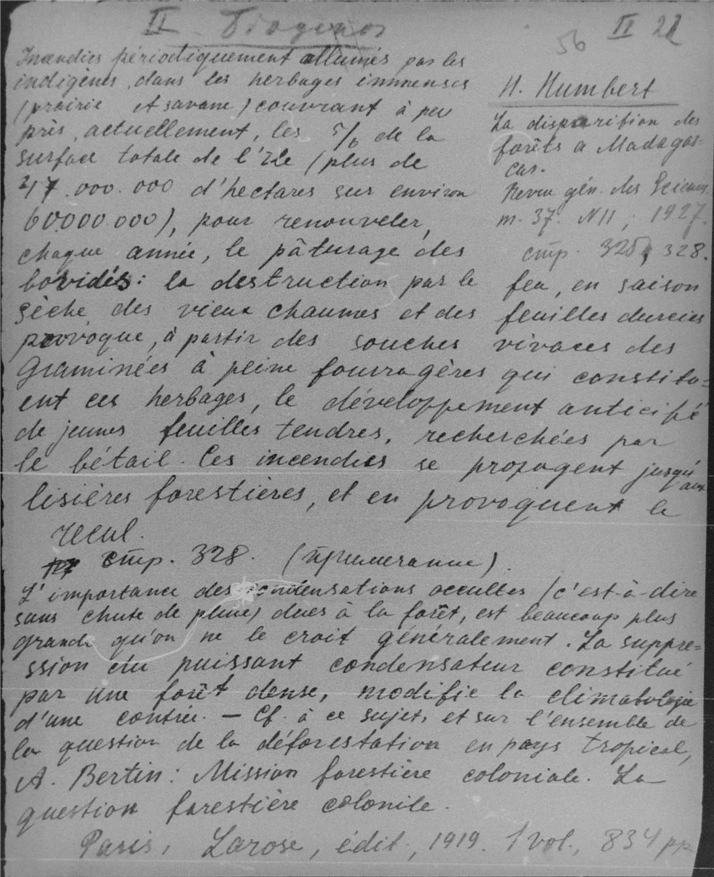 II
56 II 22
H. Humbert
La disparition des
forêts à Madagas-
car.
Revue gén. des Sciences
m. 37. N11, 1927.
стр. 325, 328.
Incendies périodiquement allumés par les
indigènes, dans les herbages immenses
(prairie et savane) couvrant à peu
près, actuellement, les 5/6 de la
surface totale de l'île (plus de
47.000.000 d'hectares sur environ
60000000), pour renouveler,
chaque année, le pâturage des
bovidés: la destruction par le feu, en saison
sèche des vieux chaumes et des feuilles durcies
provoque, à partir des souches vivaces des
Graminées à peine fourragères qui constitu-
ent ces herbages, le développement anticipé
de jeunes feuilles tendres, recherchées par
le bétail. Ces incendies se propagent jusqu'aux
lisières forestières, et en provoquent le
recul.
стр. 328. (примечание).
L'importance des condensations occultes (c'est-à-dire
sans chute de pluie) dues à la forêt, est beaucoup plus
grande qu'on ne le croit généralement. La suppre-
ssion du puissant condensateur constitué
par une forêt dense, modifie la climatologie
d'une contrée. — Cf. à ce sujet, et sur l'ensemble de
la question de la déforestation en pays tropical,
A. Bertin: Mission forestière coloniale. La
question forestière colonile.
Paris, Larose, édit., 1919. 1 vol., 834 pp.